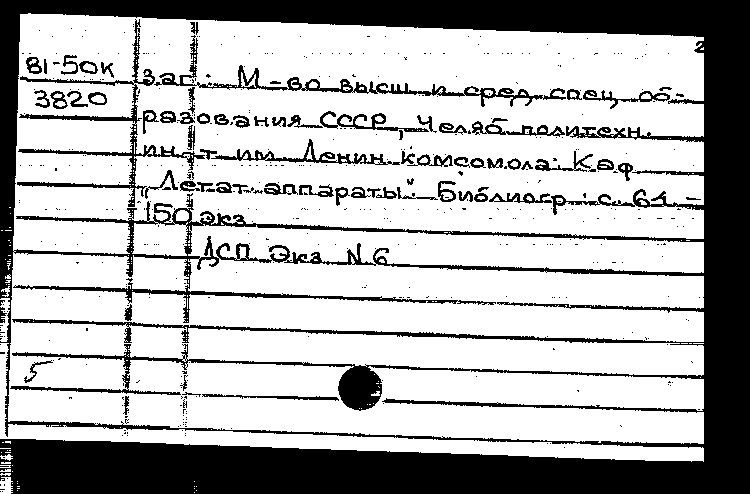 2
81-50К
3820
заг.: М-во высш и сред спец об-
разования СССР, Челяб политехн.
ин-т им Ленин комсомола: Каф
„Летат аппараты" Библиогр : с 61 –
150 экз
ДСП Экз N 6
5